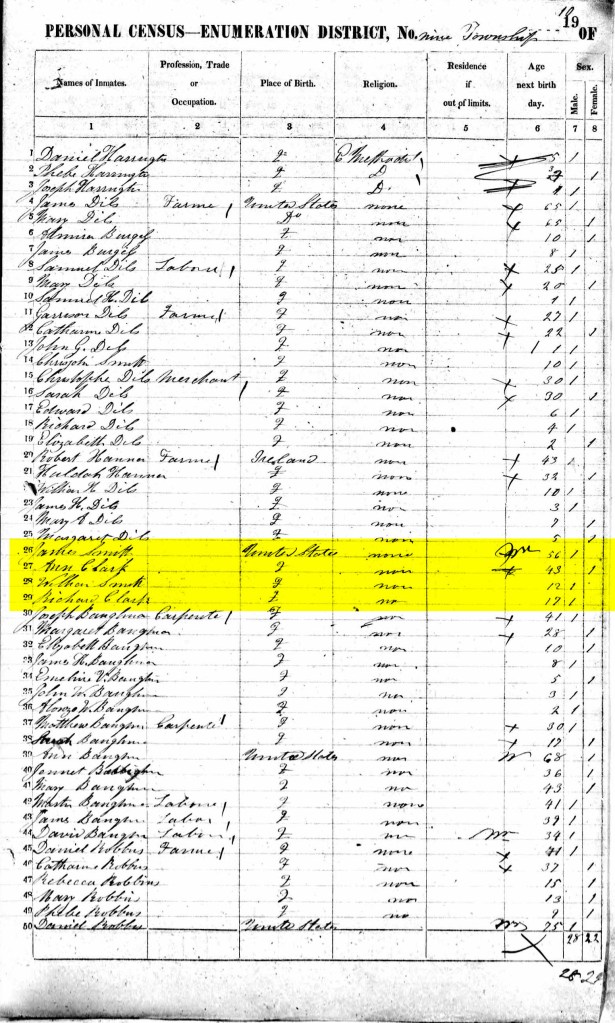 19
PERSONAL CENSUS—ENUMERATION DISTRICT, No. nine Township OF
Names of Inmates. Profession, Trade or Occupation. Place of Birth. Religion. Residence if out of limits. Age next birth day. Sex. Male. Female.
1 2 3 4 5 6 7 8
1 Daniel Harrington E Methodist 5 1
2 Phebe Harrington 1
3 Joseph Harrington 1
4 James Dils Farmer 1 United States none 65 1
5 Mary Dils Do non 65 1
6 Burgess non 10 1
7 James Burgess non 8 1
8 Samuel Dils Labore 1 non 25 1
9 Mary Dils non 20 1
10 Samuel H. Dils non 1 1
11 Garrison Dils Farmer 1 non 27 1
12 Catharine Dils non 22 1
13 John G. Dils non 1 1
14 Smith non 10 1
15 Christophe Dils Merchant 1 non 30 1
16 Sarah Dils non 30 1
17 Edward Dils non 6 1
18 Richard Dils non 4 1
19 Elizabeth Dils non 2 1
20 Robert Hanner Farme 1 Ireland non 43 1
21 Huldah Hanner non 32 1
22 William H. Dils none 10 1
23 James H. Dils non 3 1
24 Mary A Dils non 7 1
25 Margaret Dils non 5 1
26 James Smith United States none 56 1
27 Ann Clark non 43 1
28 William Smith non 12 1
29 Richard Clark no 17 1
30 Joseph Baughman 1 non 41 1
31 Margaret Baughman non 28 1
32 Elizabeth Baughman non 10 1
33 James H. Baughman non 8 1
34 Emeline V. Baughn non 5 1
35 John W. Baughn non 3 1
36 Alonzo W. Baughn non 2 1
37 Matthew Baughn Carpente 1 non 30 1
38 Baughman non 17 1
39 Ann Baughn United States non W 68 1
40 Jennet non 36 1
41 Mary Baughman no 43 1
42 Martin Baughman Labore 1 none 41 1
43 James Baughn Labor 1 non 39 1
44 David Baughn Labore 1 34 1
45 Daniel Robbins Farmer 1 none 41 1
46 Catharine Robbins non 37 1
47 Rebecca Robbins non 15 1
48 Mary Robbins non 13 1
49 Phebe Robbins no 9 1
50 Daniel Robbins United States 75 1
28 22